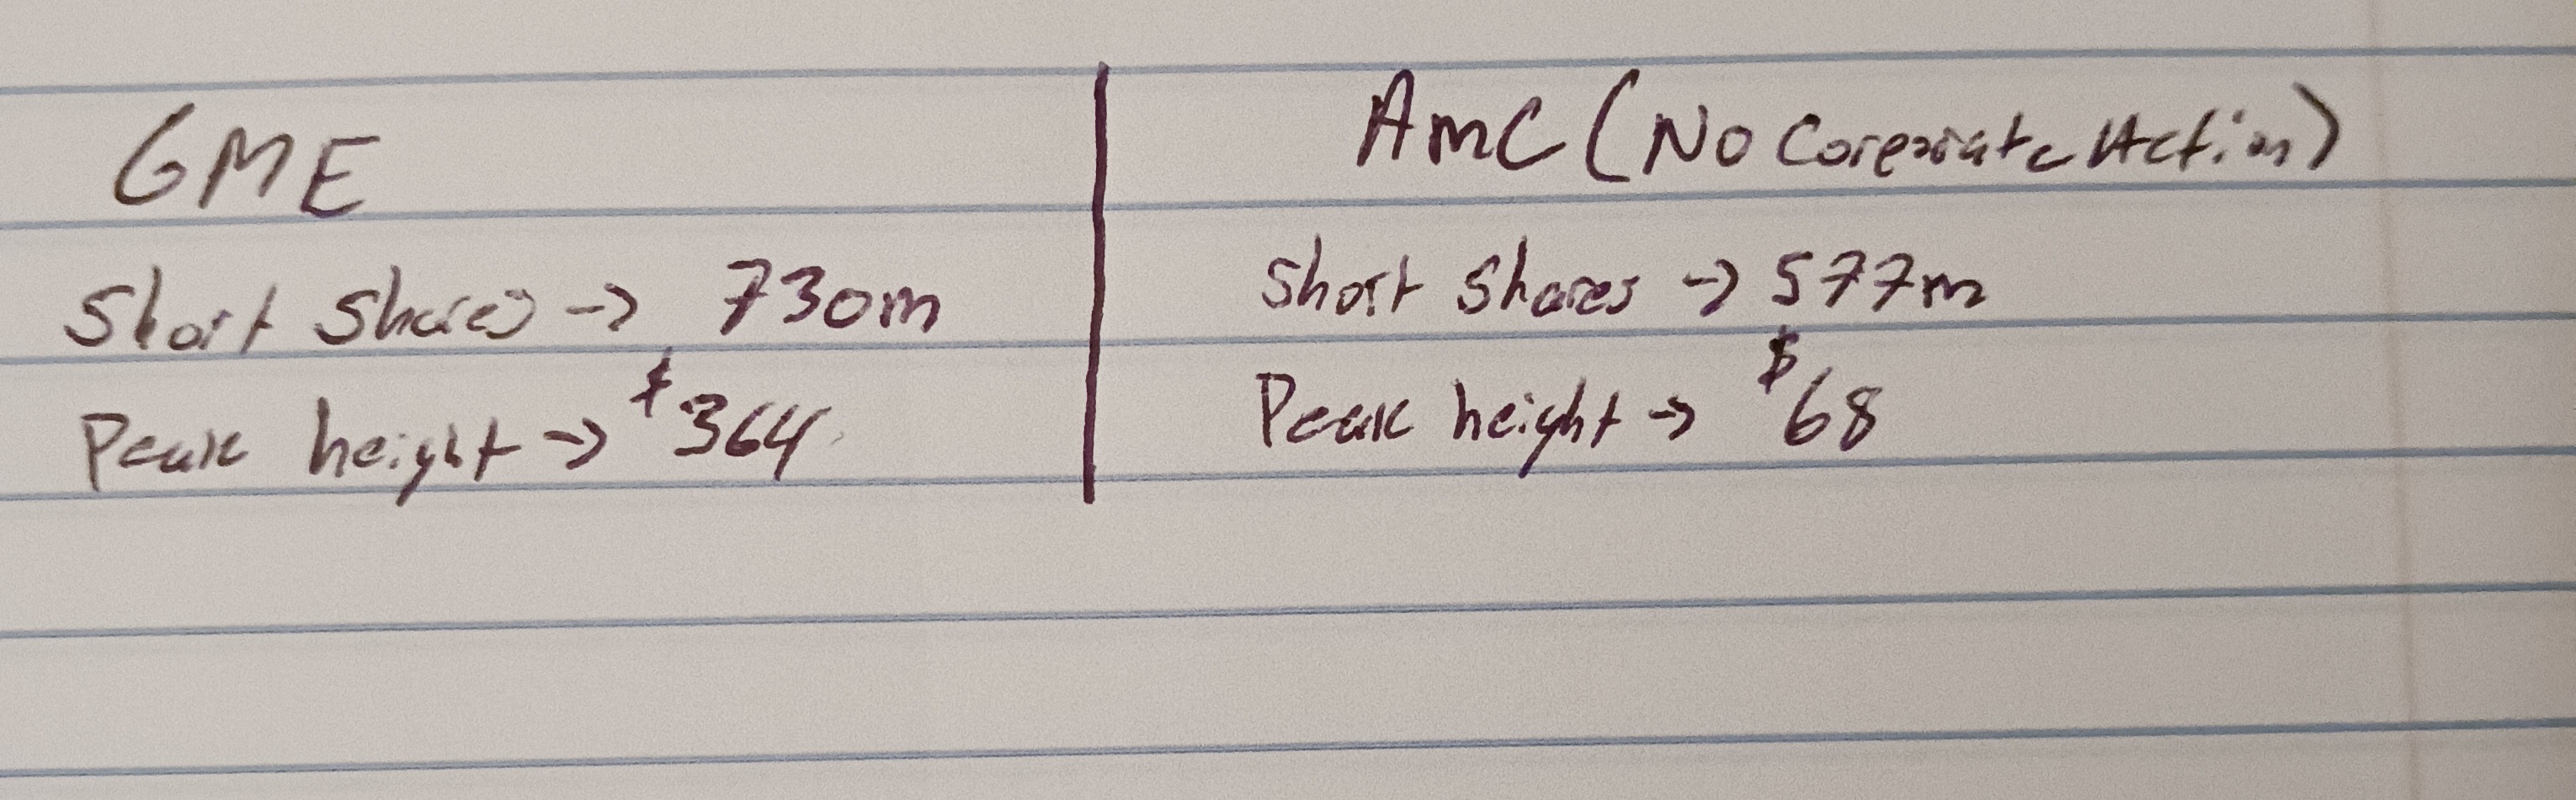 GME
Short Shares -> 730m
Peak height -> $364
AMC (No Corporate Action)
Short Shares -> 577m
Peak height -> $68